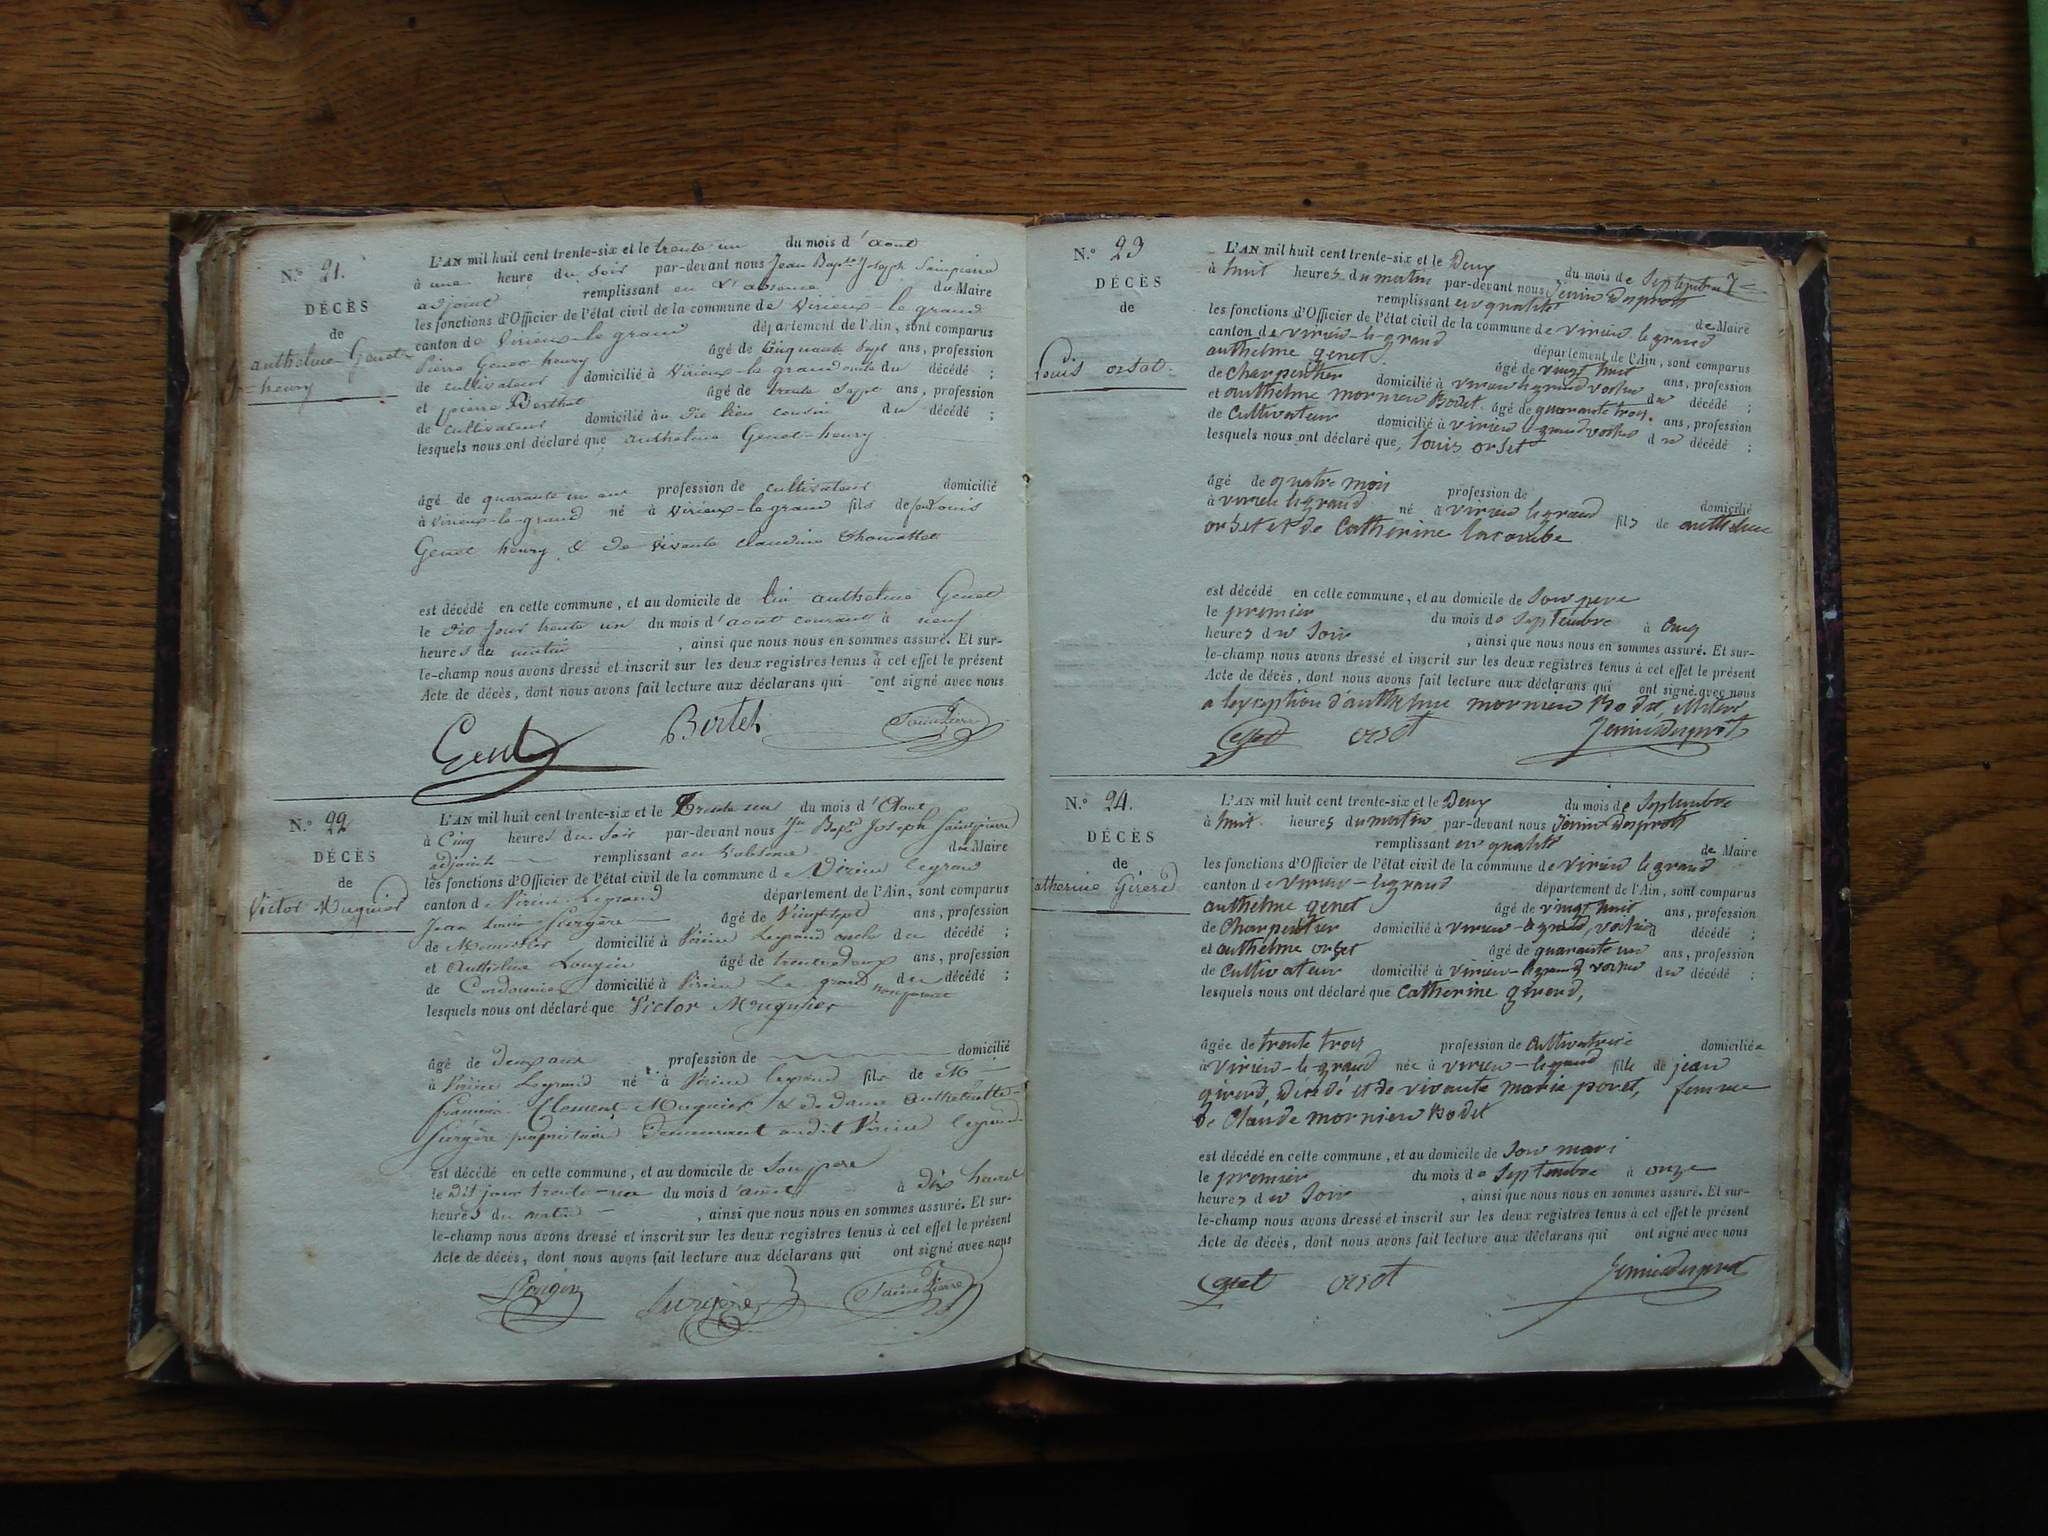 N.° 21.
DÉCÈS
de
anthelme Genet
= henry
L'AN mil huit cent trente-six et le trente un du mois d'aout
à une heure du soir par-devant nous Jean Bap.te Joseph Saintpierre
adjoint remplissant en l'absence du Maire
les fonctions d'Officier de l'état civil de la commune de Virieux-le grand
canton de Virieux-le grand département de l'Ain, sont comparus
Pierre Genet henry âgé de Cinquante Sept ans, profession
de cultivateur domicilié à Virieux-le grand oncle du décédé ;
et pierre Berthet âgé de trente Sept ans, profession
de cultivateur domicilié au dit lieu cousin du décédé ;
lesquels nous ont déclaré que anthelme Genet-henry
âgé de quarante un ans profession de cultivateur domicilié
à Virieux-le-grand né à Virieux-le grand fils de feu Louis
Genet henry & de vivante claudine Thomasset
est décédé en cette commune, et au domicile de lui anthelme Genet
le dit jour trente un du mois d'aout courant à neuf
heures du matin, ainsi que nous nous en sommes assuré. Et sur-
le-champ nous avons dressé et inscrit sur les deux registres tenus à cet effet le présent
Acte de décès, dont nous avons fait lecture aux déclarans qui ont signé avec nous
Genet Bertet SaintPierre
N.° 22
DÉCÈS
de
Victor Muguier
L'AN mil huit cent trente-six et le Trente un du mois d'Aout
à Cinq heures du soir par-devant nous Jn Bapte Joseph Saintpierre
adjoint remplissant en l'absence du Maire
les fonctions d'Officier de l'état civil de la commune de Virieu legrand
canton de Virieu Legrand département de l'Ain, sont comparus
Jean Louis Surgère âgé de Vingt sept ans, profession
de Menuisier domicilié à Virieu Legrand oncle du décédé ;
et Anthelme Lougin âgé de trente deux ans, profession
de Cordonnier domicilié à Virieu Le grand non parent du décédé ;
lesquels nous ont déclaré que Victor Muguier
âgé de deux ans profession de domicilié
à Virieu Legrand né à Virieu legrand fils de M
françois Clement Muguier & de dame Anthelmette
Surgère propriétaire demeurant audit Virieu legrand
est décédé en cette commune, et au domicile de Son pere
le dit jour trente-un du mois d'aout à dix heures
heures du matin, ainsi que nous nous en sommes assuré. Et sur-
le-champ nous avons dressé et inscrit sur les deux registres tenus à cet effet le présent
Acte de décès, dont nous avons fait lecture aux déclarans qui ont signé avec nous
Lougin Surgère SaintPierre
N.° 23
DÉCÈS
de
Louis orset
L'AN mil huit cent trente-six et le Deux du mois de Septembre
à huit heures du matin par-devant nous Jenin Desprost
remplissant en qualité de Maire
les fonctions d'Officier de l'état civil de la commune de virieu legrand
canton de virieu-le-grand département de l'Ain, sont comparus
anthelme genet âgé de vingt huit ans, profession
de charpentier domicilié à virieu legrand voisin du décédé ;
et anthelme mornieu Bodet âgé de quarante trois ans, profession
de cultivateur domicilié à virieu legrand voisin du décédé ;
lesquels nous ont déclaré que, louis orset
âgé de quatre mois profession de domicilié
à virieu legrand né à virieu legrand fils de anthelme
orset et de Catherine lacombe
est décédé en cette commune, et au domicile de Son pere
le premier du mois de Septembre à Cinq
heures du Soir, ainsi que nous nous en sommes assuré. Et sur-
le-champ nous avons dressé et inscrit sur les deux registres tenus à cet effet le présent
Acte de décès, dont nous avons fait lecture aux déclarans qui ont signé avec nous
a lexseption d'anthelme mornieu Bodet, illitéré
genet orset Jenin Desprost
N.° 24.
DÉCÈS
de
Catherine Girerd
L'AN mil huit cent trente-six et le Deux du mois de Septembre
à huit heures du matin par-devant nous Jenin Desprost
remplissant en qualité de Maire
les fonctions d'Officier de l'état civil de la commune de virieu legrand
canton de virieu-legrand département de l'Ain, sont comparus
anthelme genet âgé de vingt huit ans, profession
de Charpentier domicilié à virieu-legrand, voisin d décédé ;
et anthelme orset âgé de quarante un ans, profession
de cultivateur domicilié à virieu-legrand voisin du décédé ;
lesquels nous ont déclaré que Catherine girerd,
âgée de trente trois profession de cultivatrice domiciliée
à virieu-le-grand née à virieu-legrand fille de jean
girerd, décédé et de vivante marie povet, femme
de Claude mornieu Bodet
est décédé en cette commune, et au domicile de Son mari
le premier du mois de Septembre à onze
heures du Soir, ainsi que nous nous en sommes assuré. Et sur-
le-champ nous avons dressé et inscrit sur les deux registres tenus à cet effet le présent
Acte de décès, dont nous avons fait lecture aux déclarans qui ont signé avec nous
genet orset Jenin Desprost